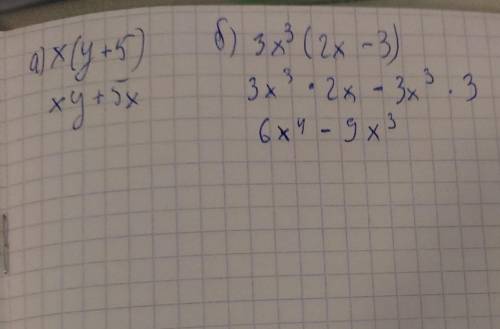 а) x(y+5)
xy+5x
б) 3x³(2x-3)
3x³·2x-3x³·3
6x⁴-9x³